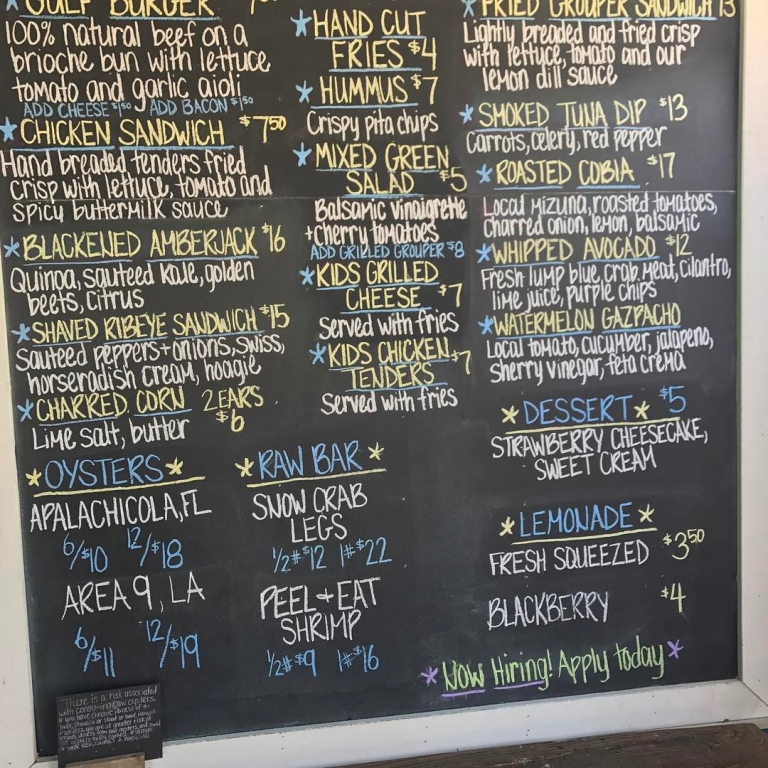 GULF BURGER
100% natural beef on a
brioche bun with lettuce
tomato and garlic aioli
ADD CHEESE $1.50 / ADD BACON $1.50
CHICKEN SANDWICH $7.50
Hand breaded tenders fried
crisp with lettuce, tomato and
spicy buttermilk sauce
BLACKENED AMBERJACK $16
Quinoa, sauteed kale, golden
beets, citrus
SHAVED RIBEYE SANDWICH $15
Sauteed peppers+onions, swiss,
horseradish cream, hoagie
CHARRED CORN 2 EARS
$6
Lime salt, butter
OYSTERS
APALACHICOLA, FL
6/$10 12/$18
AREA 9, LA
6/$11 12/$19
There is a risk associated
HAND CUT
FRIES $4
HUMMUS $7
Crispy pita chips
MIXED GREEN
SALAD $5
Balsamic vinaigrette
+cherry tomatoes
ADD GRILLED GROUPER $8
KIDS GRILLED
CHEESE $7
Served with fries
KIDS CHICKEN
TENDERS $7
Served with fries
RAW BAR
SNOW CRAB
LEGS
1/2# $12 1# $22
PEEL + EAT
SHRIMP
1/2# $9 1# $16
FRIED GROUPER SANDWICH 13
Lightly breaded and fried crisp
with lettuce, tomato and our
lemon dill sauce
SMOKED TUNA DIP $13
Carrots, celery, red pepper
ROASTED COBIA $17
Local mizuna, roasted tomatoes,
charred onion, lemon, balsamic
WHIPPED AVOCADO $12
Fresh lump blue crab meat, cilantro,
lime juice, purple chips
WATERMELON GAZPACHO
Local tomato, cucumber, jalapeno,
sherry vinegar, feta crema
DESSERT $5
STRAWBERRY CHEESECAKE,
SWEET CREAM
LEMONADE
FRESH SQUEEZED $3.50
BLACKBERRY $4
Now Hiring! Apply today